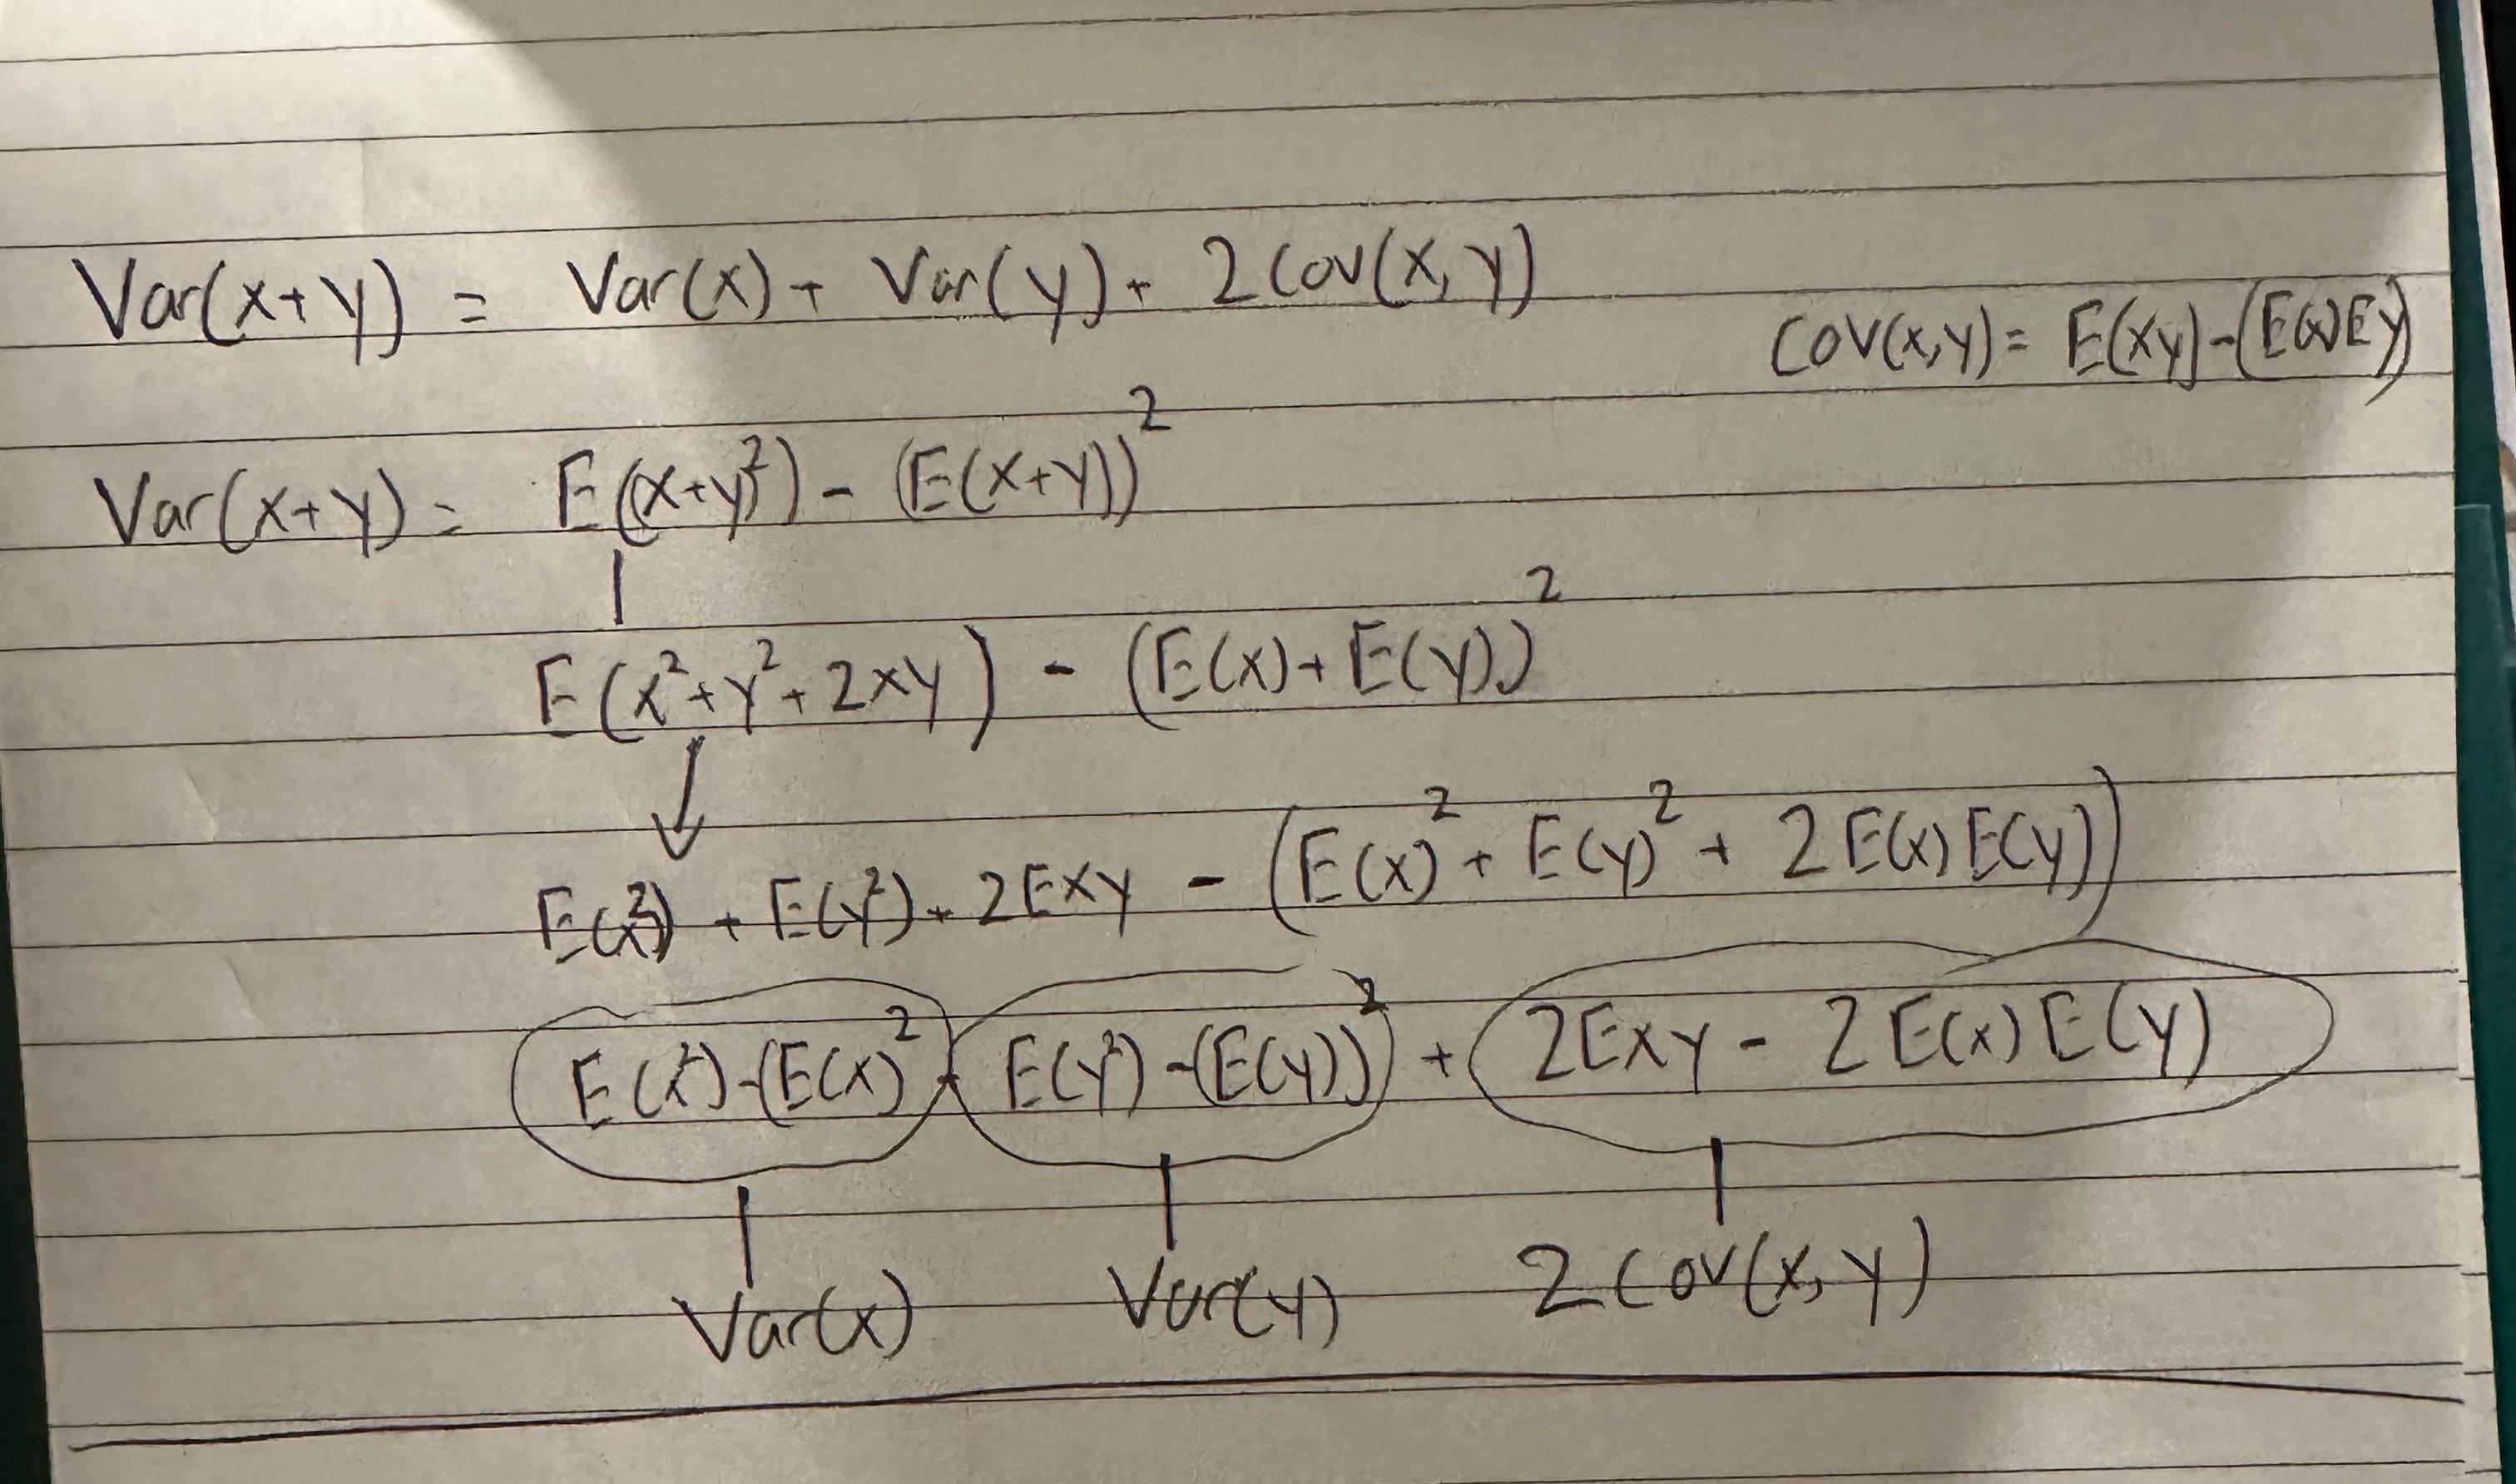 Var(x+y) = Var(x) + Var(y) + 2Cov(x,y)
Cov(x,y) = E(xy) - (E(x)Ey)
Var(x+y) = E((x+y)²) - (E(x+y))²
E(x²+y²+2xy) - (E(x)+E(y))²
E(x²) + E(y²) + 2Exy - (E(x)² + E(y)² + 2E(x)E(y))
E(x²)-(E(x)² + E(y²)-(E(y))² + 2Exy - 2E(x)E(y)
Var(x) Var(y) 2Cov(x,y)